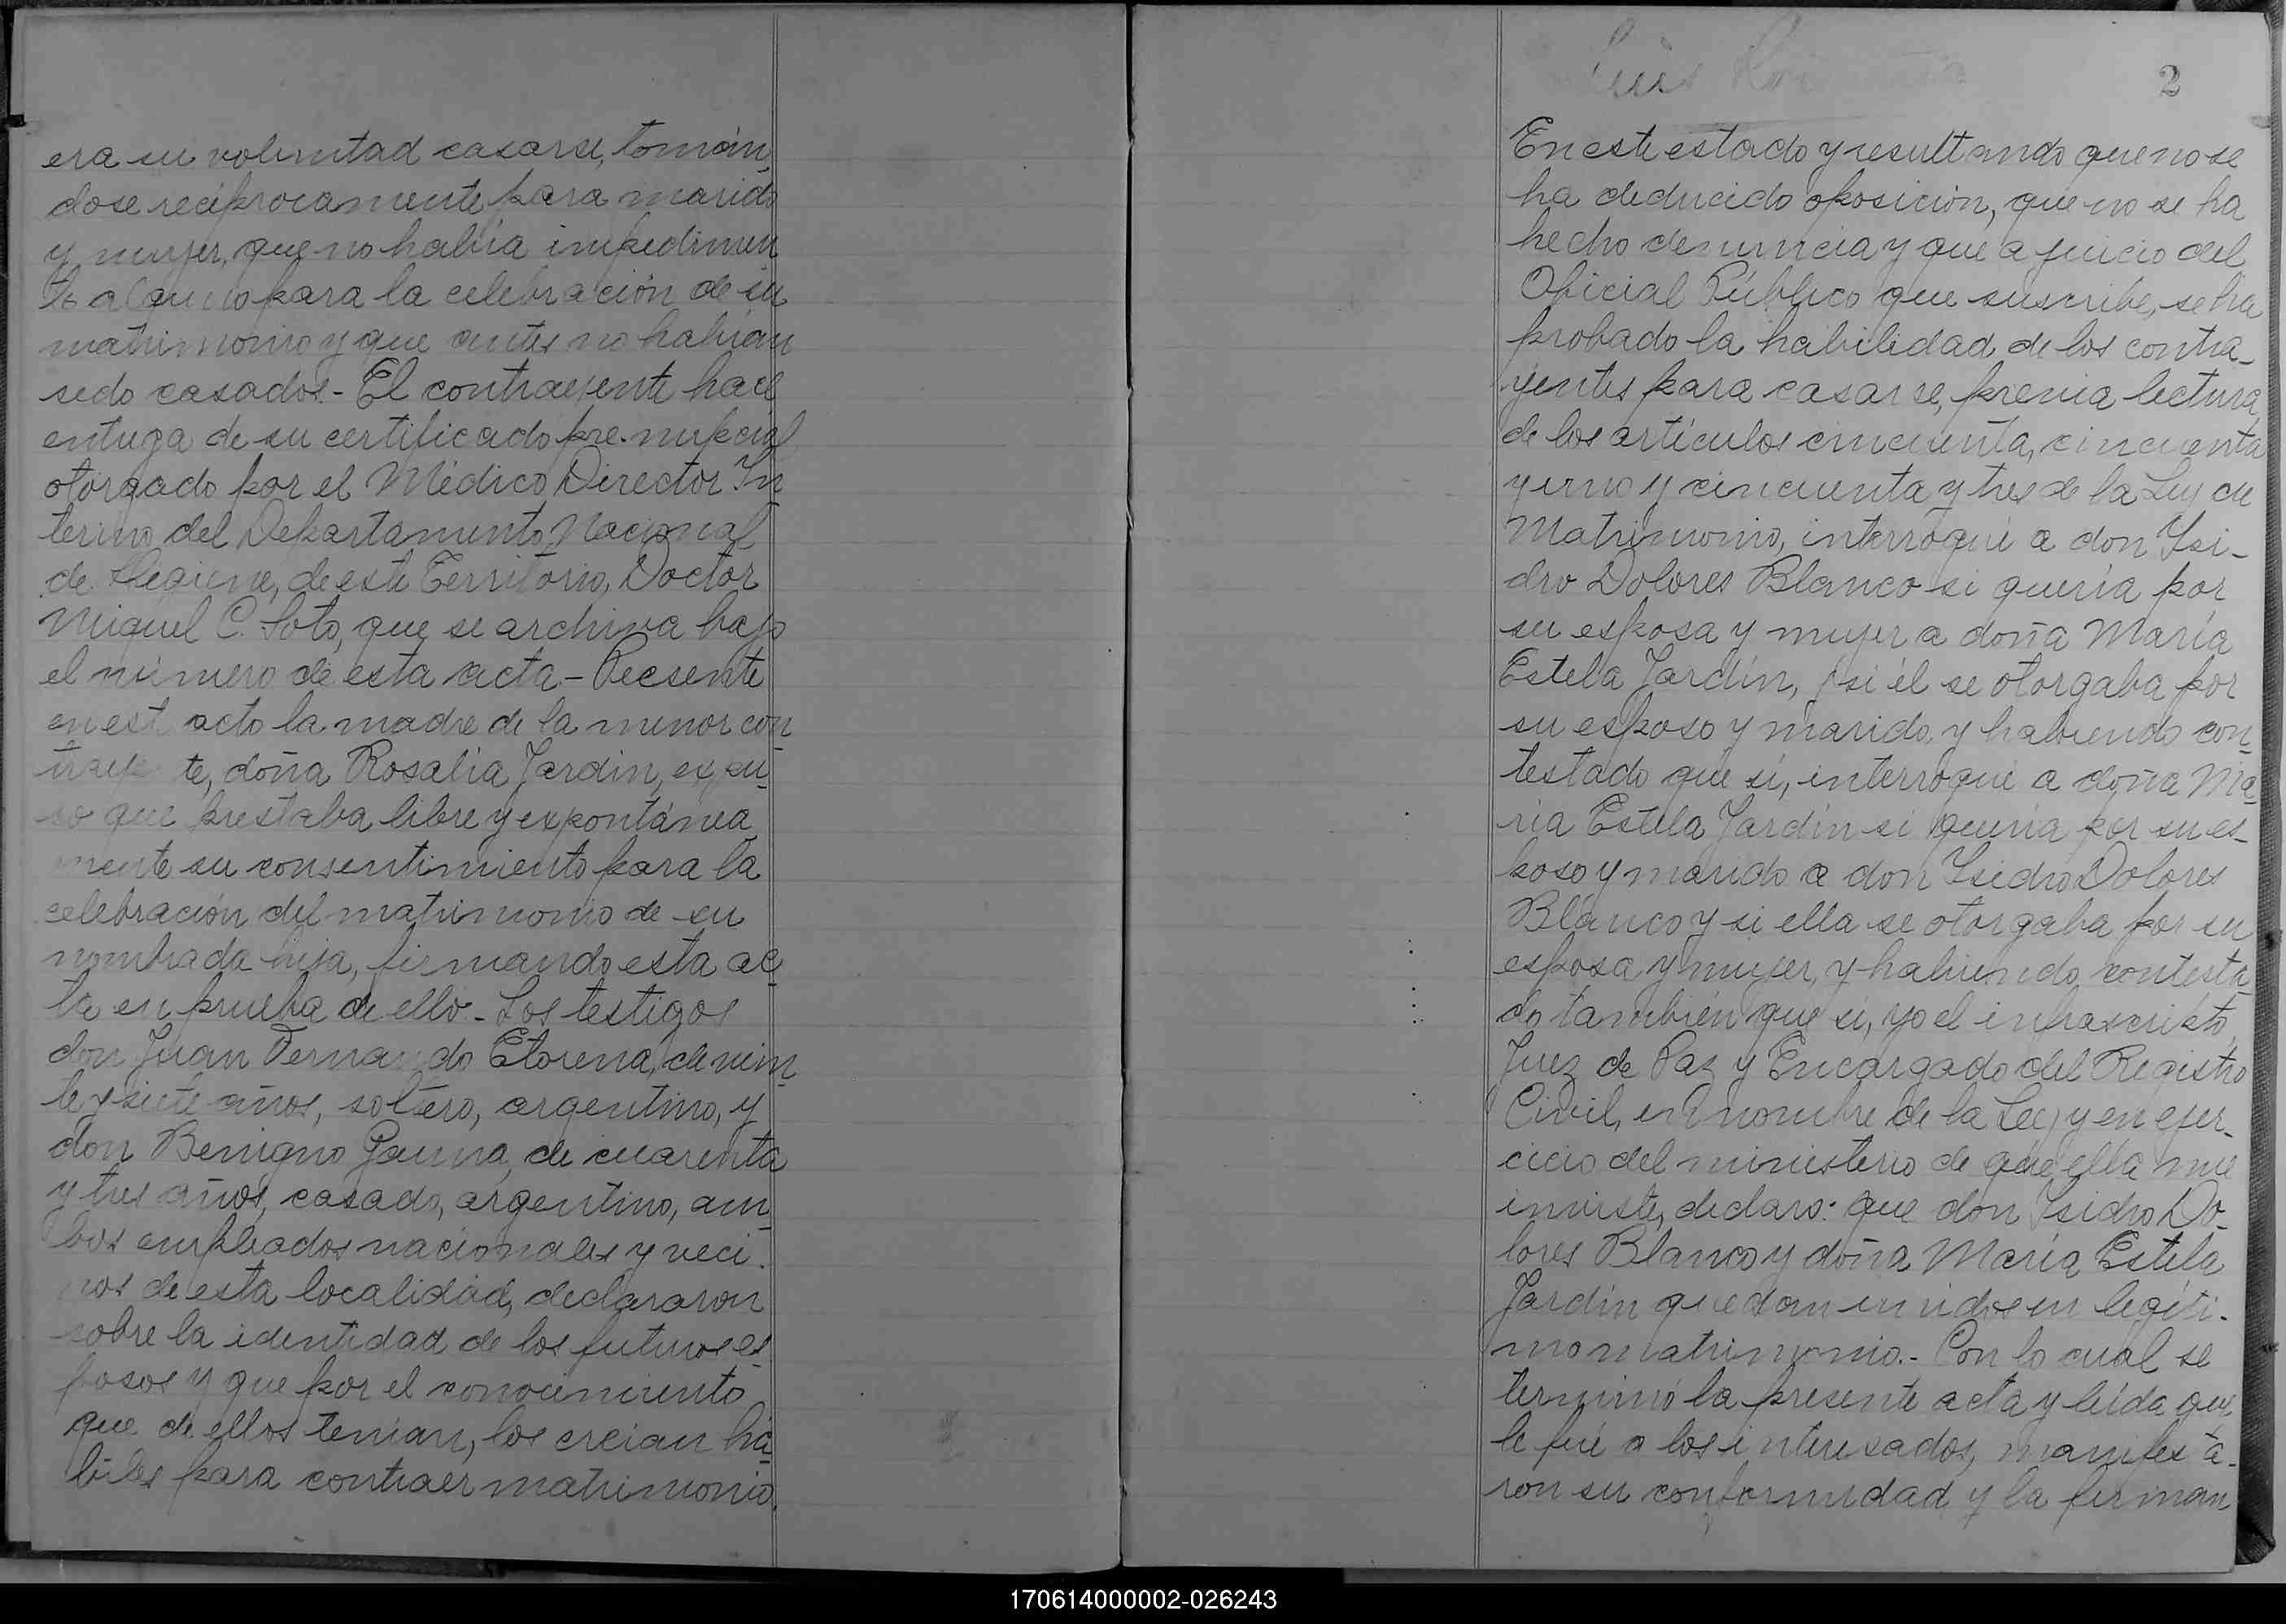 era su voluntad casarse, tomán
dose recíprocamente para marido
y mujer, que no había impedimen
to alguno para la celebración de su
matrimonio y que antes no habían
sido casados.- El contrayente hace
entrega de su certificado pre-nupcial
otorgado por el Médico Director In
terino del Departamento Nacional
de Higiene, de este Territorio, Doctor
Miguel C. Soto, que se archiva bajo
el número de esta acta.- Presente
en est acto la madre de la menor con
traye te, doña Rosalía Jardín, expu
so que prestaba libre y expontánea
mente su consentimiento para la
celebración del matrimonio de su
nombrada hija, firmando esta ac
ta en prueba de ello.- Los testigos
don Juan Fernando Etorena, de vein
te y siete años, soltero, argentino, y
don Benigno Gauna, de cuarenta
y tres años, casado, argentino, am
bos empleados nacionales y veci-
nos de esta localidad, declararon
sobre la identidad de los futuros es
posos y que por el conocimiento
que de ellos tenían, los creían há
biles para contraer matrimonio.
Luis
2
En este estado y resultando que no se
ha deducido oposición, que no se ha
hecho denuncia y que a juicio del
Oficial Público que suscribe, se ha
probado la habilidad de los contra-
yentes para casarse, previa lectura
de los artículos cincuenta, cincuenta
y uno y cincuenta y tres de la Ley de
Matrimonio, interrogué a don Isi-
dro Dolores Blanco si quería por
su esposa y mujer a doña María
Estela Jardín, y si él se otorgaba por
su esposo y marido, y habiendo con-
testado que sí, interrogué a doña Ma
ría Estela Jardín si quería por su es-
poso y marido a don Isidro Dolores
Blanco y si ella se otorgaba por su
esposa y mujer, y habiendo contesta
do también que sí, yo el infrascripto
Juez de Paz y Encargado del Registro
Civil, en nombre de la Ley y en ejer-
cicio del ministerio de que ella me
inviste, declaro: que don Isidro Do-
lores Blanco y doña María Estela
Jardín quedan unidos en legíti-
mo matrimonio.- Con lo cual se
terminó la presente acta y leída que
le fué a los interesados, manifesta-
ron su conformidad y la firman
170614000002-026243